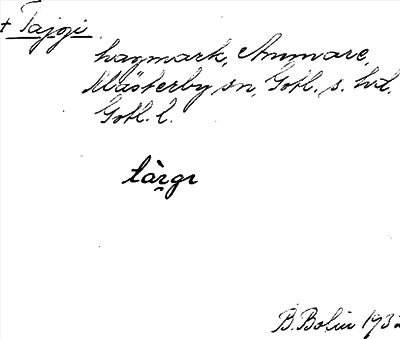 + Tajgi.
hagmark, Ammare,
Mästerby sn, Gotl. s. hd.
Gotl. l.
tàrgı
B. Bolin 1932